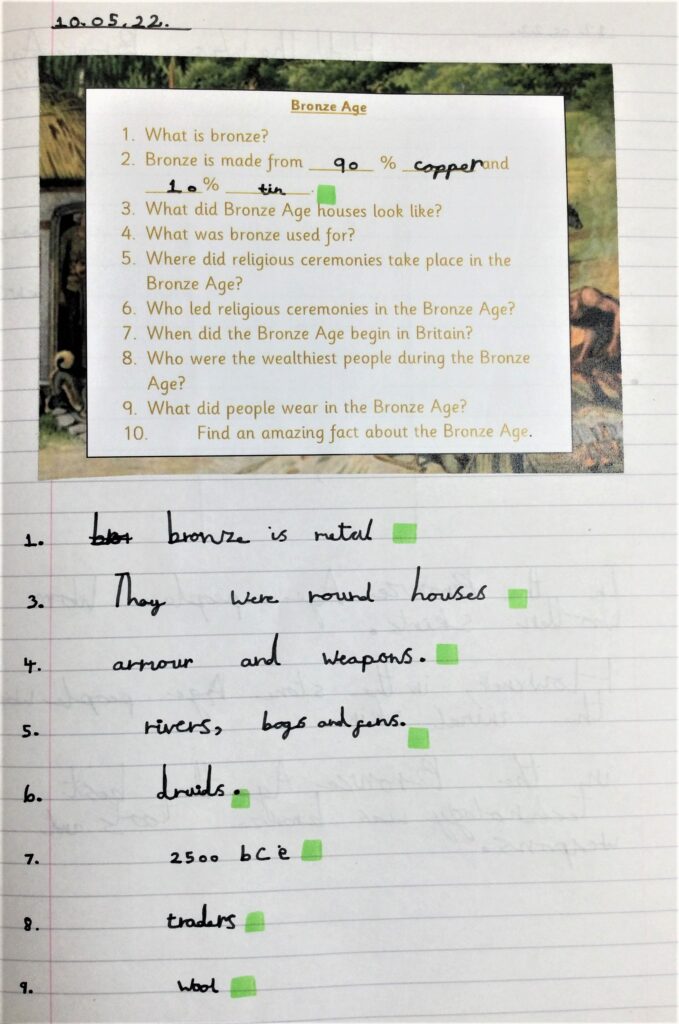 10.05.22.
Bronze Age
1. What is bronze?
2. Bronze is made from 90 % copper and
10 % tin.
3. What did Bronze Age houses look like?
4. What was bronze used for?
5. Where did religious ceremonies take place in the
Bronze Age?
6. Who led religious ceremonies in the Bronze Age?
7. When did the Bronze Age begin in Britain?
8. Who were the wealthiest people during the Bronze
Age?
9. What did people wear in the Bronze Age?
10. Find an amazing fact about the Bronze Age.
1. bronze is metal
3. They were round houses
4. armour and weapons.
5. rivers, bogs and fens.
6. druids.
7. 2500 bCe
8. traders
9. wool